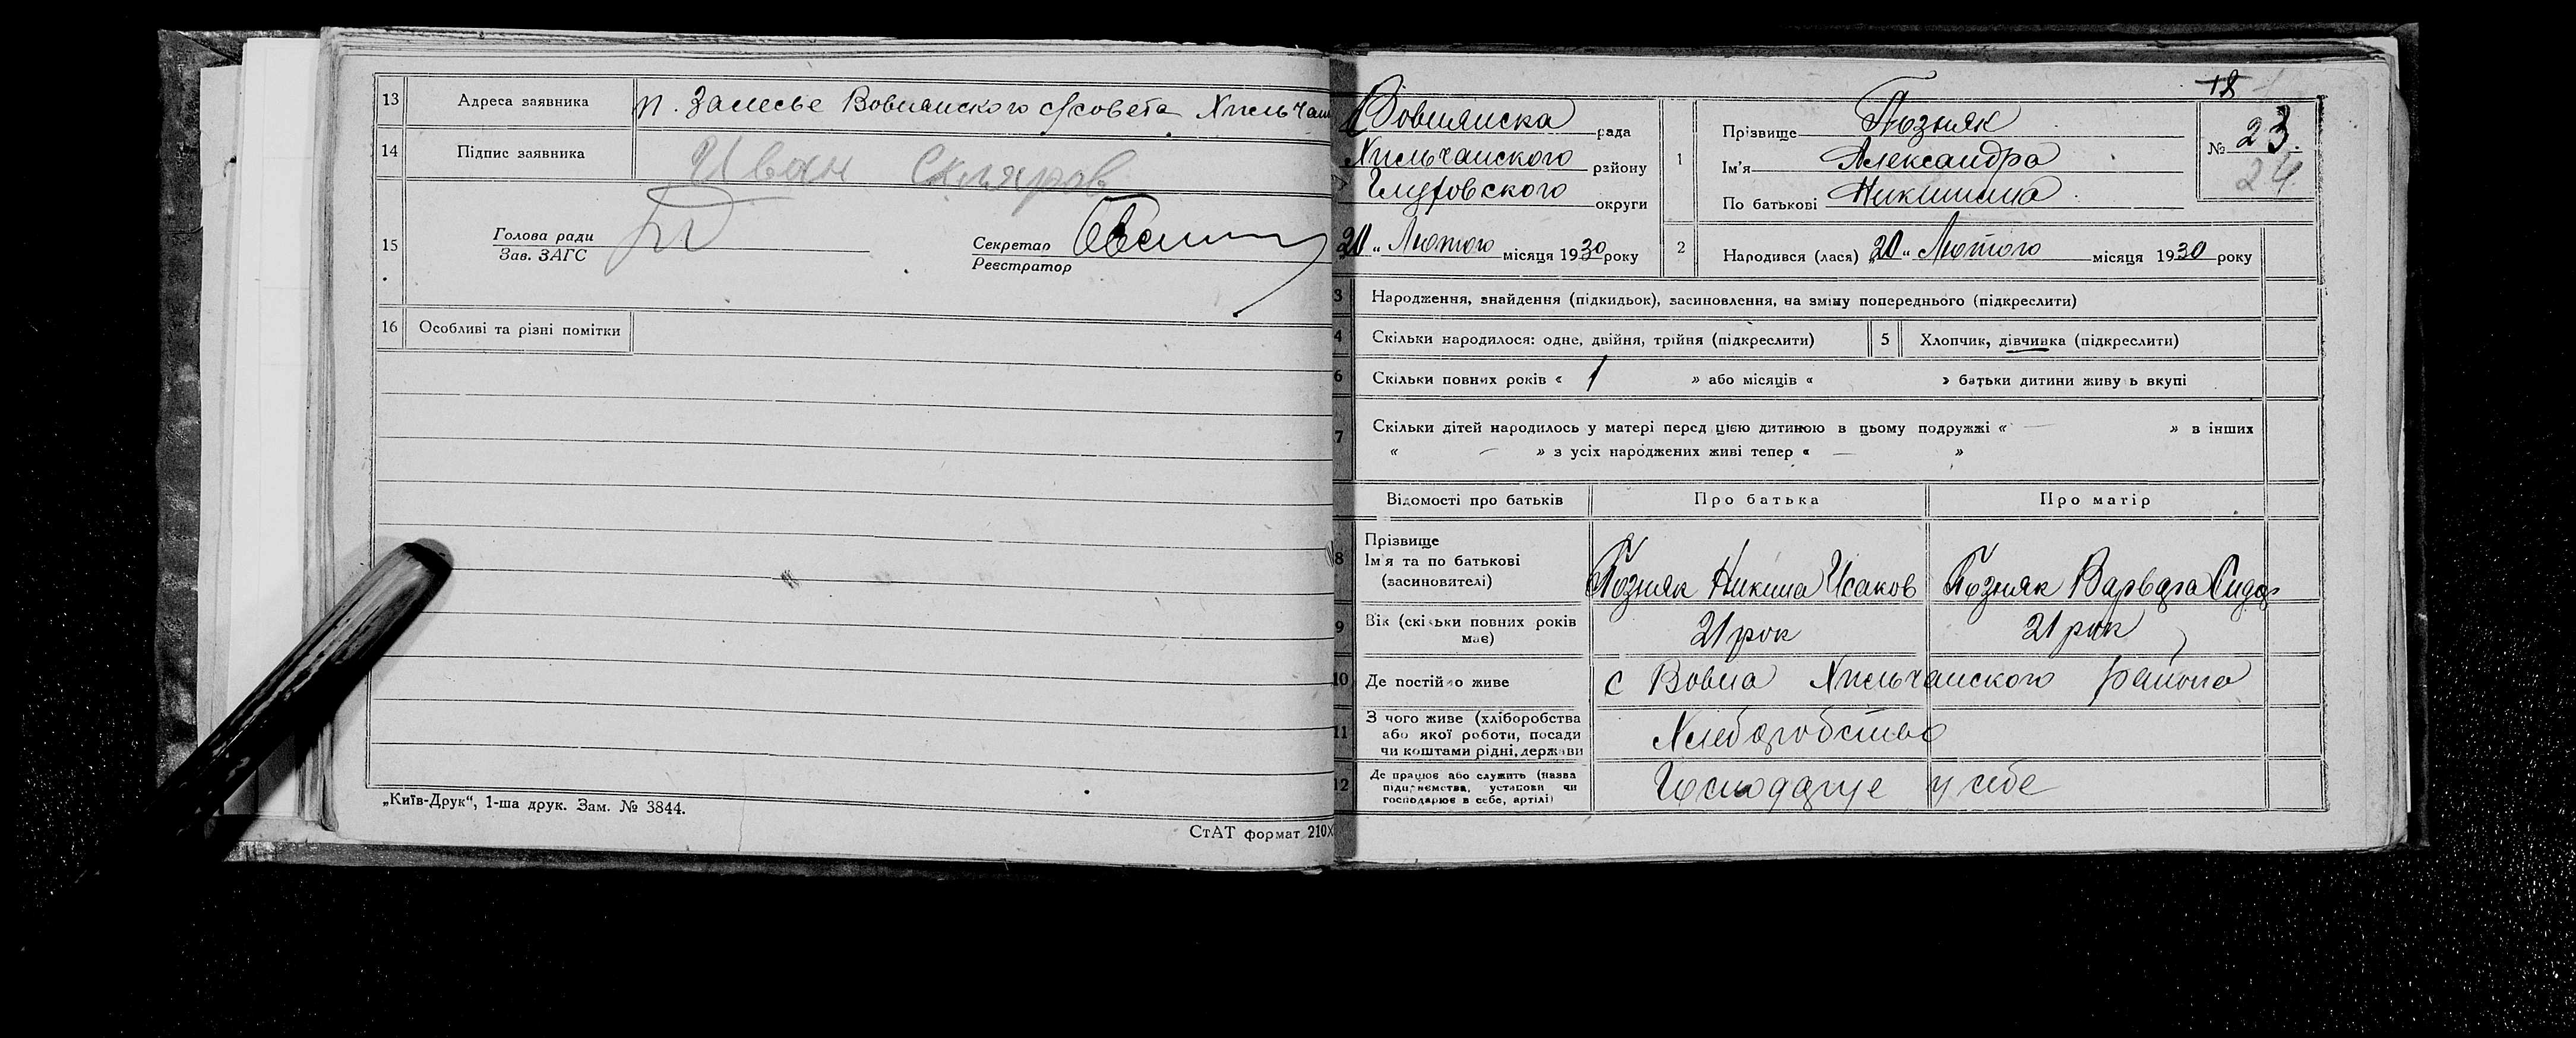 13 Адреса заявника п. Залесье Вовнянского с/совета Хильчан
14 Підпис заявника Иван Скляров
15 Голова ради
Зав. ЗАГС
Секретар
Реєстратор
16 Особливі та різні помітки
„Київ-Друк“, 1-ша друк. Зам. № 3844.
СтАТ формат 210х
18
Вовнянска рада
Хильчанского району
Глуховского округи
20 „ Лютого місяця 1930 року
1 Прізвище Позняк
Ім'я Александра
По батькові Никитина
№ 23.
24
2 Народився (лася) „20“ Лютого місяця 1930 року
3 Народження, знайдення (підкидьок), засиновлення, на зміну попереднього (підкреслити)
4 Скільки народилося: одне, двійня, трійня (підкреслити) 5 Хлопчик, дівчинка (підкреслити)
6 Скільки повних років « 1 » або місяців « » батьки дитини живу ь вкупі
7 Скільки дітей народилось у матері перед цією дитиною в цьому подружжі « — » в інших
« — » з усіх народжених живі тепер « — »
Відомості про батьків Про батька Про матір
8 Прізвище
Ім'я та по батькові
(засиновителі)
Позняк Никита Исаков Позняк Варвара Сидор
9 Вік (скільки повних років
має)
21 рок 21 рок
10 Де постійно живе с Вовна Хильчанского района
11 З чого живе (хліборобства
або якої роботи, посади
чи коштами рідні, держави
Хлеборобство
12 Де працює або служить (назва
підприємства, установи чи
господарює в себе, артілі)
Господарує у себе